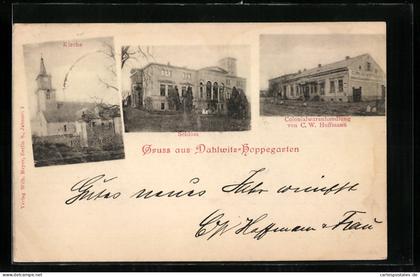 Kirche
Schloss
Colonialwarenhandlung
von C. W. Hoffmann
Gruss aus Dahlwitz-Hoppegarten
Gutes neues Jahr wünscht
C. W. Hoffmann & Frau
Verlag Wilh. Meyer, Berlin S.